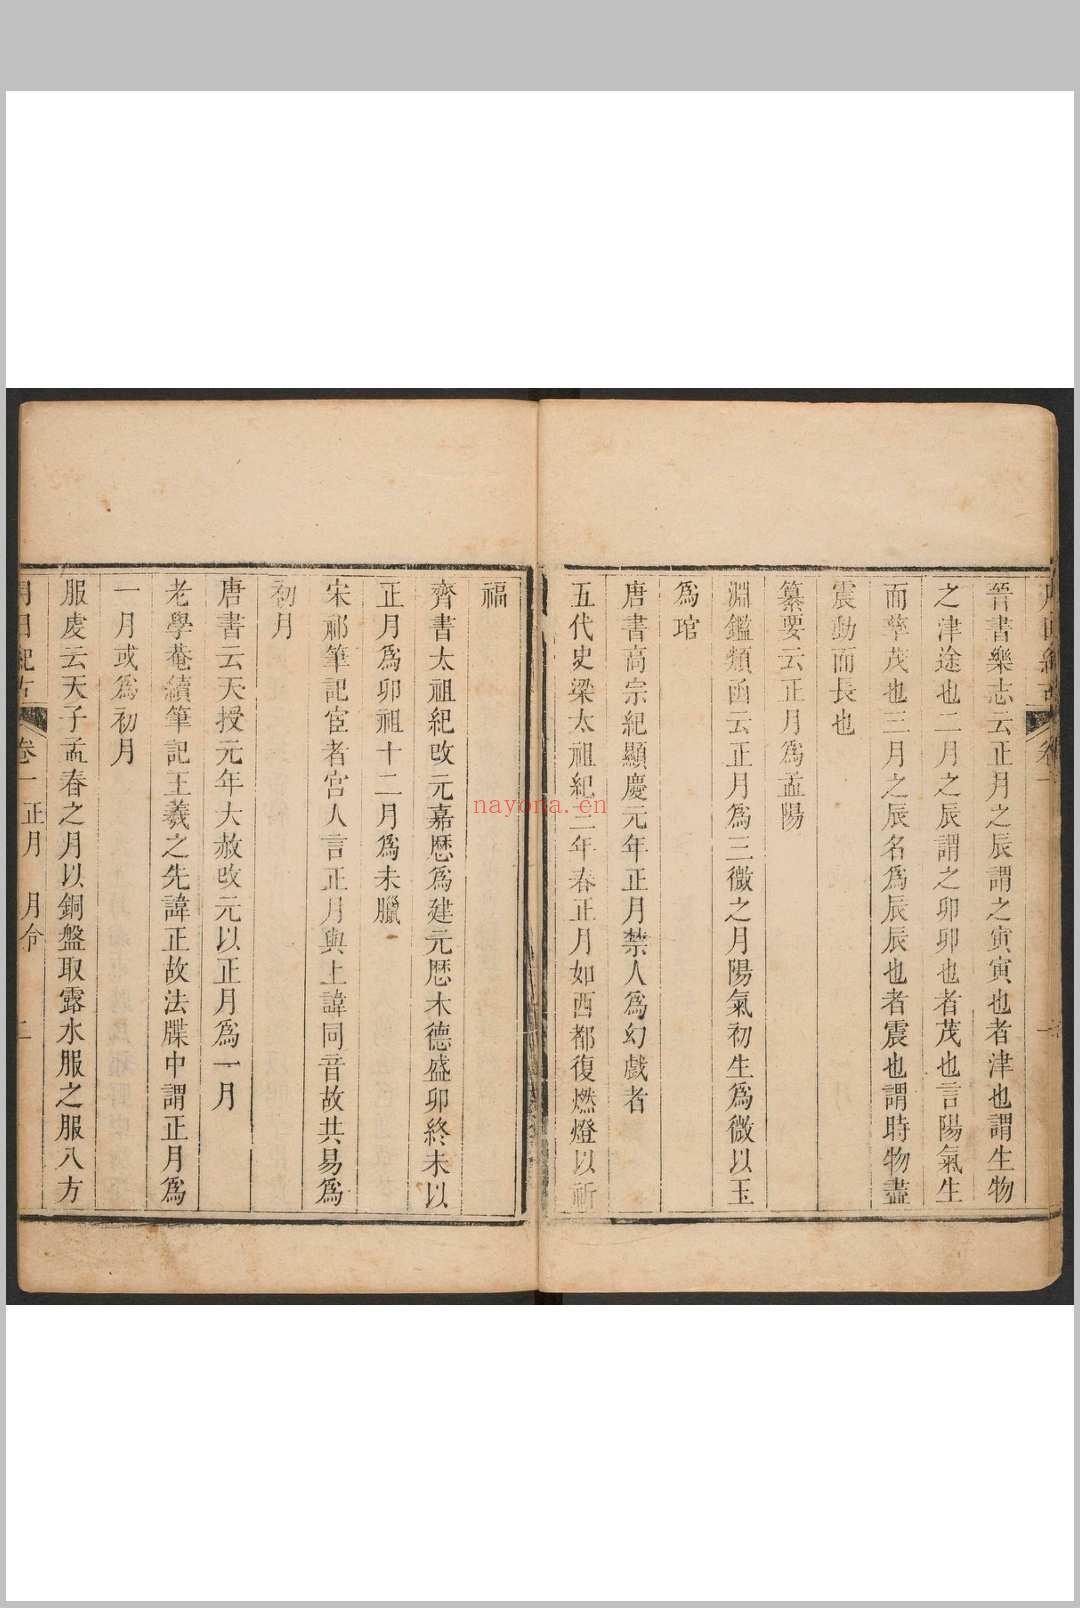 晉書樂志云正月之辰謂之寅寅也者津也謂生物
之津途也二月之辰謂之卯卯也者茂也言陽氣生
而孳茂也三月之辰名為辰辰也者震也謂時物盡
震動而長也
纂要云正月為孟陽
淵鑑類函云正月為三微之月陽氣初生為微以玉
為琯
唐書高宗紀顯慶元年正月禁人為幻戲者
五代史梁太祖紀三年春正月如西都復燃燈以祈
福
齊書太祖紀改元嘉厯為建元厯木德盛卯終未以
正月為卯祖十二月為未臘
宋祁筆記宦者宮人言正月與上諱同音故共易為
初月
唐書云天授元年大赦改元以正月為一月
老學菴續筆記王羲之先諱正故法牒中謂正月為
一月或為初月
服䖍云天子孟春之月以銅盤取露水服之服八方
月日紀古 卷一 正月 月令 二
nayona.cn